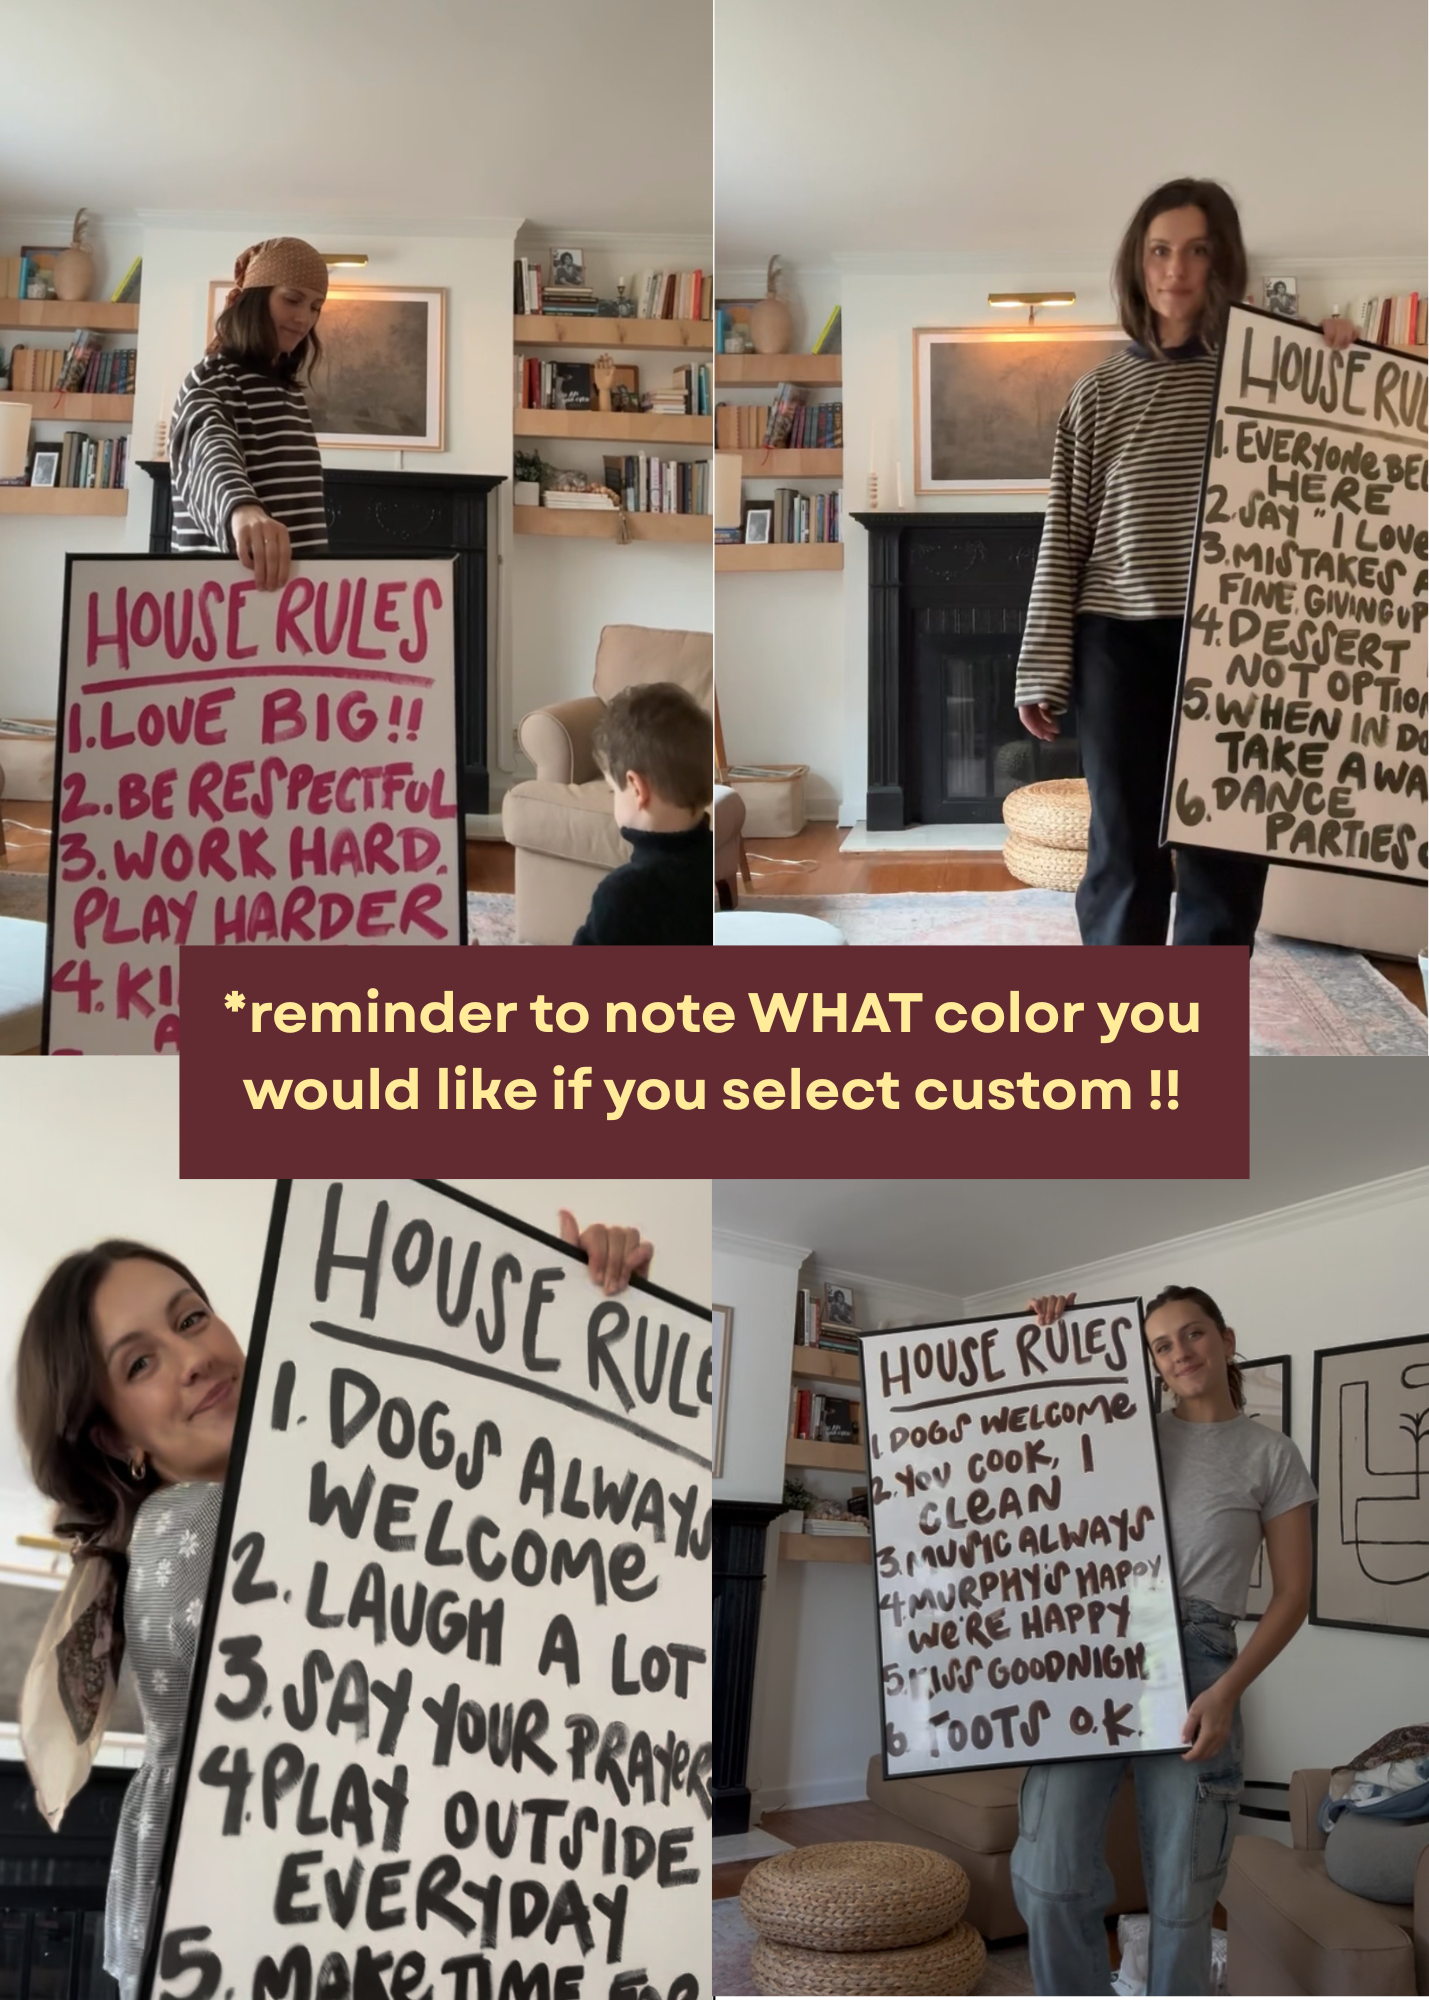 HOUSE RULES
1. LOVE BIG!!
2. BE RESPECTFUL
3. WORK HARD.
PLAY HARDER
4. KI
A
HOUSE RUL
1. EVERYONE BEL
HERE
2. SAY "I LOVE
3. MISTAKES A
FINE. GIVING UP
4. DESSERT
NOT OPTION
5. WHEN IN DO
TAKE A WA
6. DANCE
PARTIES
*reminder to note WHAT color you
would like if you select custom !!
HOUSE RULE
1. DOGS ALWAYS
WELCOMe
2. LAUGH A LOT
3. SAY YOUR PRAYeR
4. PLAY OUTSIDE
EVERYDAY
5. MAKe TIME FOR
HOUSE RULES
1. DOGS WELCOMe
2. YOU COOK, I
CLeAN
3. MUSIC ALWAYS
4. MURPHY'S HAPPY
We'RE HAPPY
5. KISS GOODNIGH
6 TOOTS O.K.